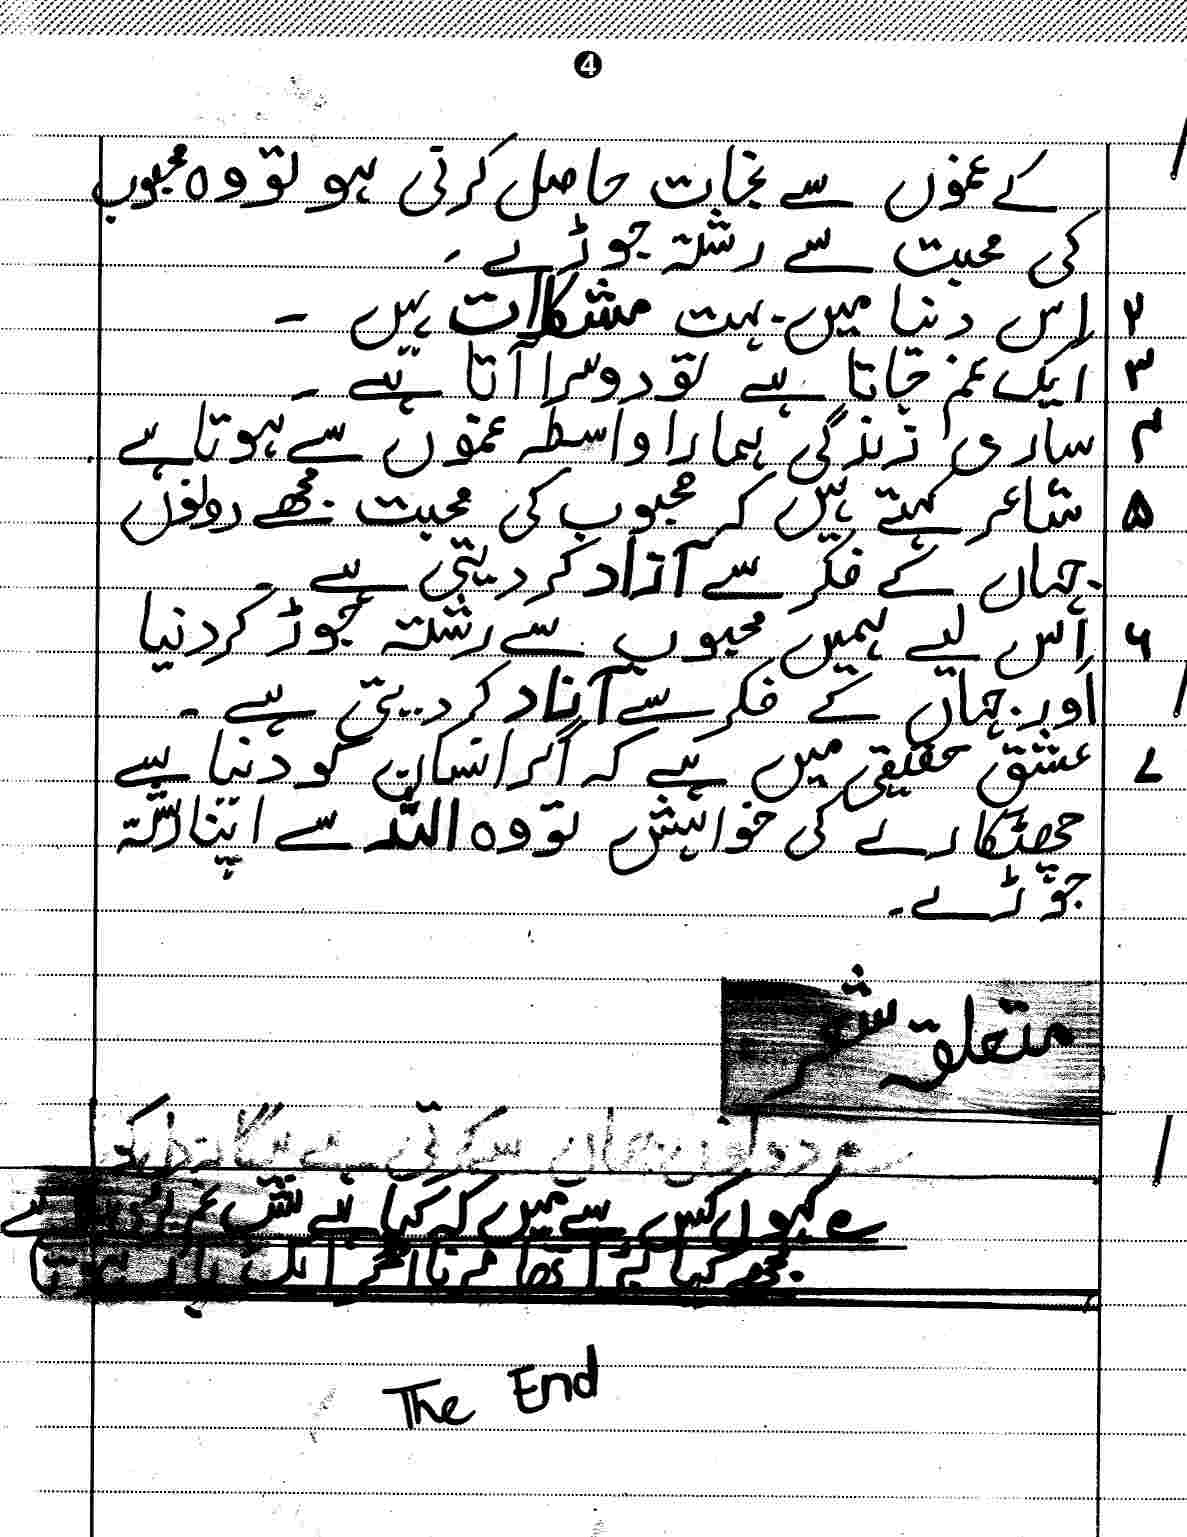 4
کے غموں سے نجات حاصل کرتی ہو تو وہ محبوب
کی محبت سے رشتہ جوڑے ۔
۲ اس دنیا میں بہت مشکلات ہیں ۔
۳ ایک غم جاتا ہے تو دوسرا آتا ہے ۔
۴ ساری زندگی ہمارا واسطہ غموں سے ہوتا ہے
۵ شاعر کہتے ہیں کہ محبوب کی محبت مجھے دونوں
جہاں کے فکر سے آزاد کر دیتی ہے ۔
۶ اس لیے ہمیں محبوب سے رشتہ جوڑ کر دنیا
اور جہاں کے فکر سے آزاد کر دیتی ہے ۔
۷ عشق حقیقی میں ہے کہ اگر انسان کو دنیا سے
چھٹکارے کی خواہش تو وہ اللہ سے اپنا رشتہ
جوڑے ۔
متعلقہ شعر
دونوں جہاں سے کرتی ہے بیگانہ دل کو
کہوں کس سے میں کہ کیا ہے شب غم بری بلا ہے
مجھے کیا برا تھا مرنا اگر ایک بار ہوتا
The End